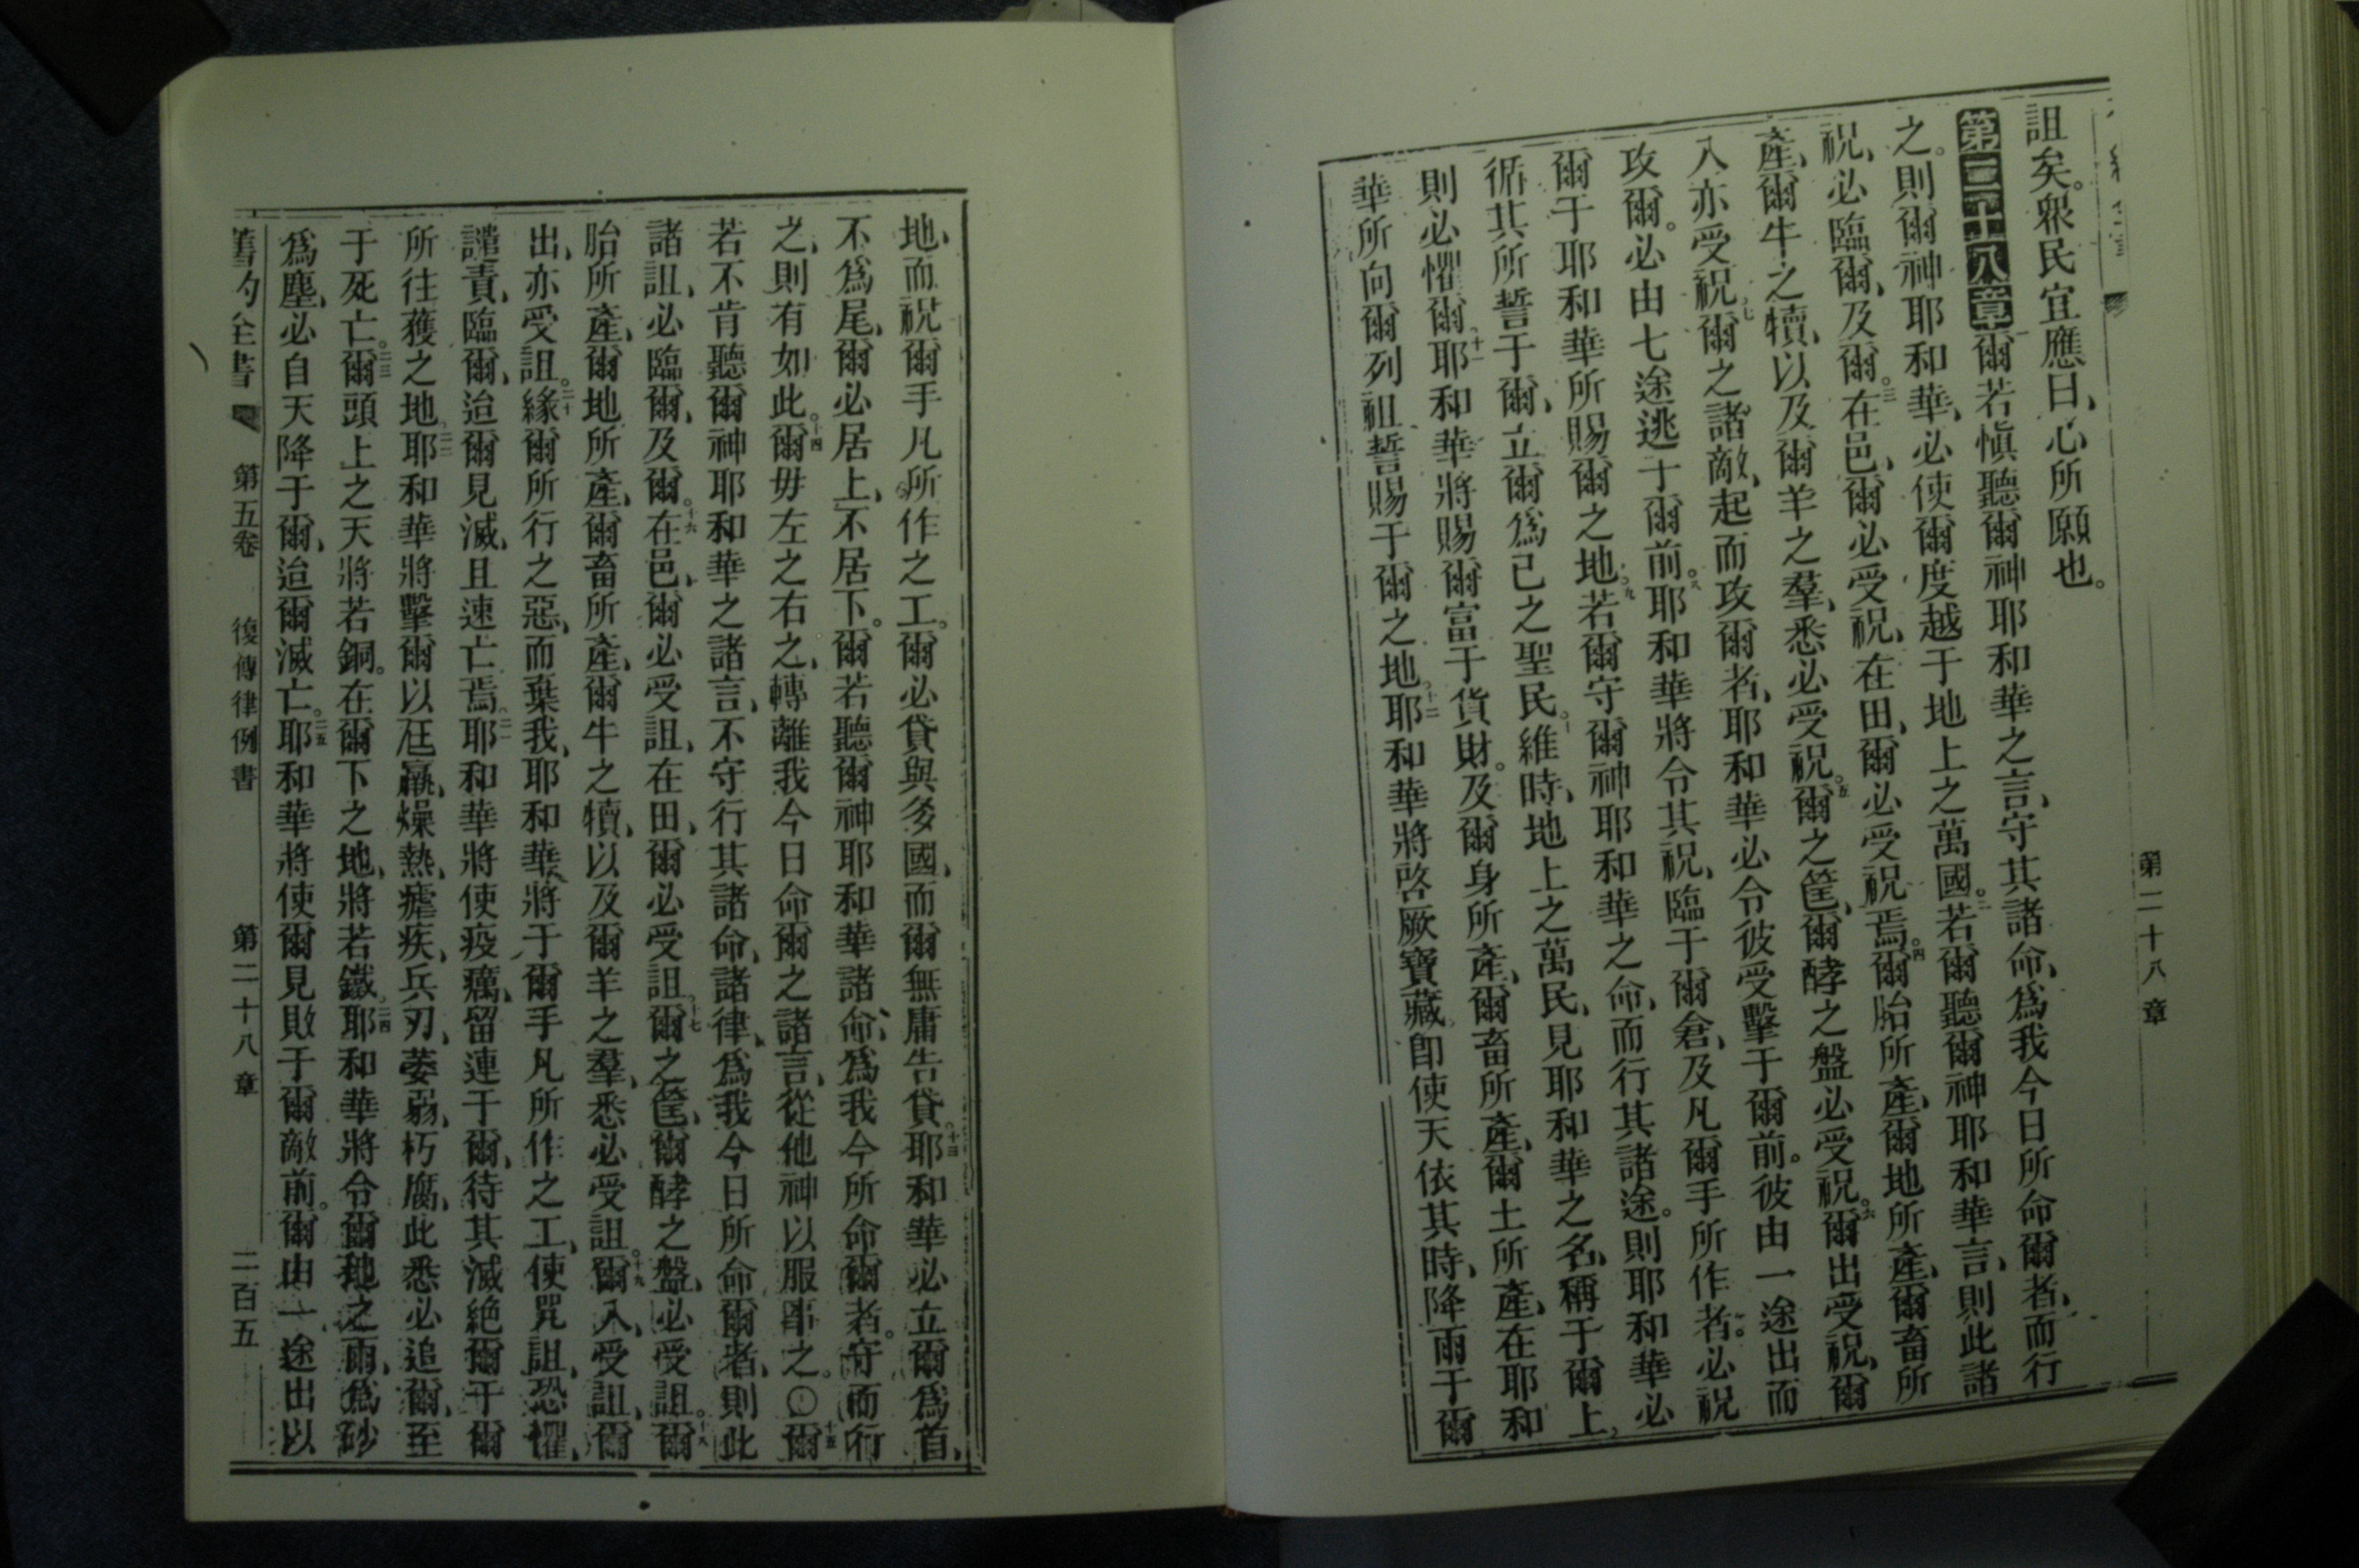 第二十八章
詛矣。衆民宜應曰、心所願也。
第二十八章 一爾若愼聽爾神耶和華之言、守其諸命、爲我今日所命爾者、而行
之。則爾神耶和華、必使爾度越于地上之萬國。二若爾聽爾神耶和華言、則此諸
祝、必臨爾、及爾。三在邑、爾必受祝、在田、爾必受祝焉。四爾胎所產、爾地所產、爾畜所
產、爾牛之犢、以及爾羊之羣、悉必受祝。五爾之筐、爾酵之盤必受祝。六爾出受祝、爾
入亦受祝。七爾之諸敵、起而攻爾者、耶和華必令彼受擊于爾前。彼由一途出而
攻爾。必由七途逃于爾前。八耶和華將令其祝、臨于爾倉、及凡爾手所作者。必祝
爾于耶和華所賜爾之地。九若爾守爾神耶和華之命、而行其諸途。則耶和華必
循其所誓于爾、立爾爲己之聖民。十維時、地上之萬民、見耶和華之名、稱于爾上、
則必懼爾。十一耶和華將賜爾富于貨財。及爾身所產、爾畜所產、爾土所產、在耶和
華所向爾列祖誓賜于爾之地。十二耶和華將啓厥寶藏、即使天依其時、降雨于爾
地、而祝爾手凡所作之工。爾必貸與多國、而爾無庸告貸。十三耶和華必立爾爲首、
不爲尾、爾必居上、不居下。爾若聽爾神耶和華諸命、爲我今所命爾者。守而行
之、則有如此。十四爾毋左之右之、轉離我今日命爾之諸言、從他神以服事之。〇十五爾
若不肯聽爾神耶和華之諸言、不守行其諸命、諸律、爲我今日所命爾者、則此
諸詛、必臨爾、及爾。十六在邑、爾必受詛、在田、爾必受詛。十七爾之筐、爾酵之盤、必受詛。十八爾
胎所產、爾地所產、爾畜所產、爾牛之犢、以及爾羊之羣、悉必受詛。十九爾入、受詛、爾
出、亦受詛。二十緣爾所行之惡、而棄我、耶和華將于爾手凡所作之工、使咒詛、恐懼、
譴責、臨爾、迨爾見滅、且速亡焉。二一耶和華將使疫癘、留連于爾、待其滅絕爾于爾
所往獲之地。二二耶和華將擊爾以尫羸、燥熱、瘧疾、兵刃、萎弱、朽腐、此悉必追爾、至
于死亡。二三爾頭上之天將若銅。在爾下之地、將若鐵。二四耶和華將令爾地之雨、爲砂
爲塵、必自天降于爾、迨爾滅亡。二五耶和華將使爾見敗于爾敵前。爾由一途出以
舊約全書 第五卷 復傳律例書 第二十八章 二百五